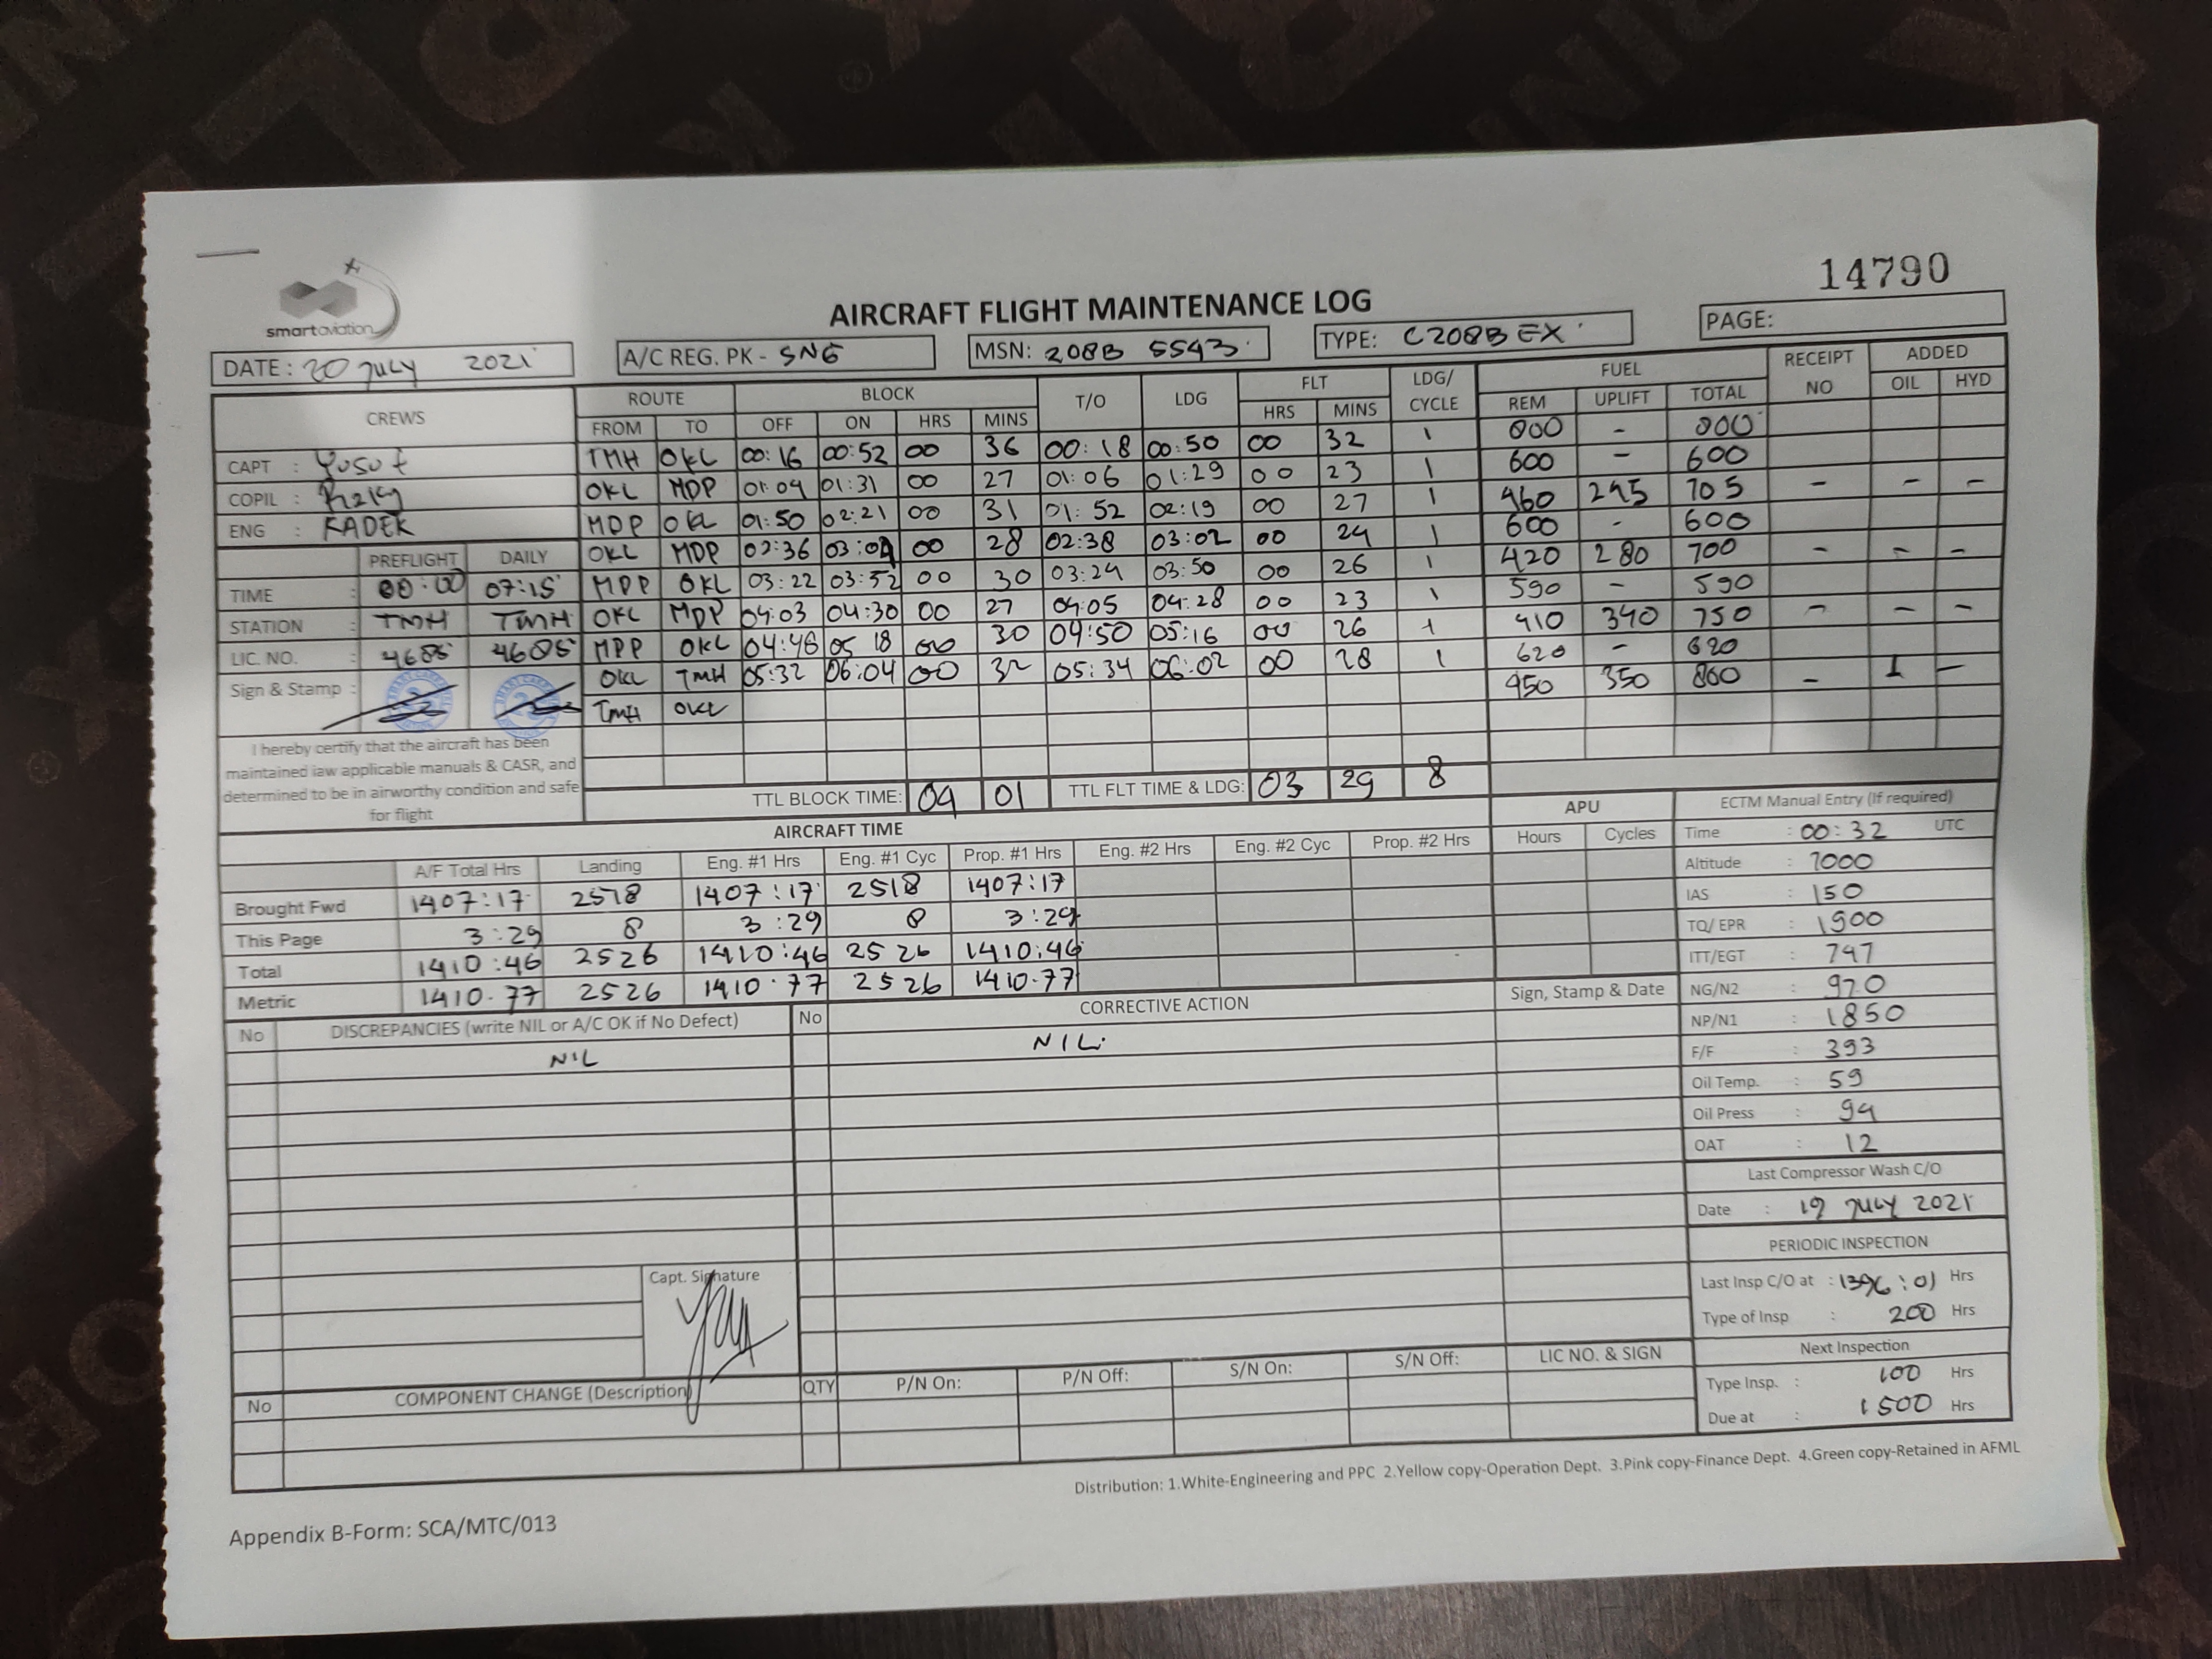 14790
smartaviation
AIRCRAFT FLIGHT MAINTENANCE LOG
PAGE:
DATE: 20 JULY 2021
A/C REG. PK - SNG
MSN: 208B 5543
TYPE: C208B EX
CREWS ROUTE BLOCK T/O LDG FLT LDG/ CYCLE FUEL RECEIPT NO ADDED
FROM TO OFF ON HRS MINS HRS MINS REM UPLIFT TOTAL OIL HYD
CAPT : Yusuf TMH OKL 00:16 00:52 00 36 00:18 00:50 00 32 1 800 - 800
COPIL : Rizky OKL MDP 01:04 01:31 00 27 01:06 01:29 00 23 1 600 - 600
ENG : KADEK MDP OKL 01:50 02:21 00 31 01:52 02:19 00 27 1 460 245 705 - - -
PREFLIGHT DAILY OKL MDP 02:36 03:04 00 28 02:38 03:02 00 24 1 600 - 600
TIME : 00:00 07:15 MDP OKL 03:22 03:52 00 30 03:24 03:50 00 26 1 420 280 700 - - -
STATION : TMH TMH OKL MDP 04:03 04:30 00 27 04:05 04:28 00 23 1 590 - 590
LIC. NO. : 4685 4685 MDP OKL 04:48 05 18 00 30 04:50 05:16 00 26 1 410 340 750 - - -
Sign & Stamp : OKL TMH 05:32 06:04 00 32 05:34 06:02 00 28 1 620 - 620
TMH OKL 450 350 800 - 1 -
I hereby certify that the aircraft has been
maintained iaw applicable manuals & CASR, and
determined to be in airworthy condition and safe
for flight
TTL BLOCK TIME: 04 01 TTL FLT TIME & LDG: 03 29 8
AIRCRAFT TIME APU
A/F Total Hrs Landing Eng. #1 Hrs Eng. #1 Cyc Prop. #1 Hrs Eng. #2 Hrs Eng. #2 Cyc Prop. #2 Hrs Hours Cycles
Brought Fwd 1407:17 2518 1407:17 2518 1407:17
This Page 3:29 8 3:29 8 3:29
Total 1410:46 2526 1410:46 2526 1410:46
Metric 1410.77 2526 1410.77 2526 1410.77
ECTM Manual Entry (If required)
Time : 00:32 UTC
Altitude : 7000
IAS : 150
TQ/ EPR : 1900
ITT/EGT : 747
NG/N2 : 97.0
NP/N1 : 1850
F/F : 393
Oil Temp. : 59
Oil Press : 94
OAT : 12
Last Compressor Wash C/O
Date : 19 JULY 2021
PERIODIC INSPECTION
Last Insp C/O at : 1396:01 Hrs
Type of Insp : 200 Hrs
Next Inspection
Type Insp. : 100 Hrs
Due at : 1500 Hrs
No DISCREPANCIES (write NIL or A/C OK if No Defect) No CORRECTIVE ACTION Sign, Stamp & Date
NIL NIL.
Capt. Signature
No COMPONENT CHANGE (Description) QTY P/N On: P/N Off: S/N On: S/N Off: LIC NO. & SIGN
Distribution: 1.White-Engineering and PPC 2.Yellow copy-Operation Dept. 3.Pink copy-Finance Dept. 4.Green copy-Retained in AFML
Appendix B-Form: SCA/MTC/013